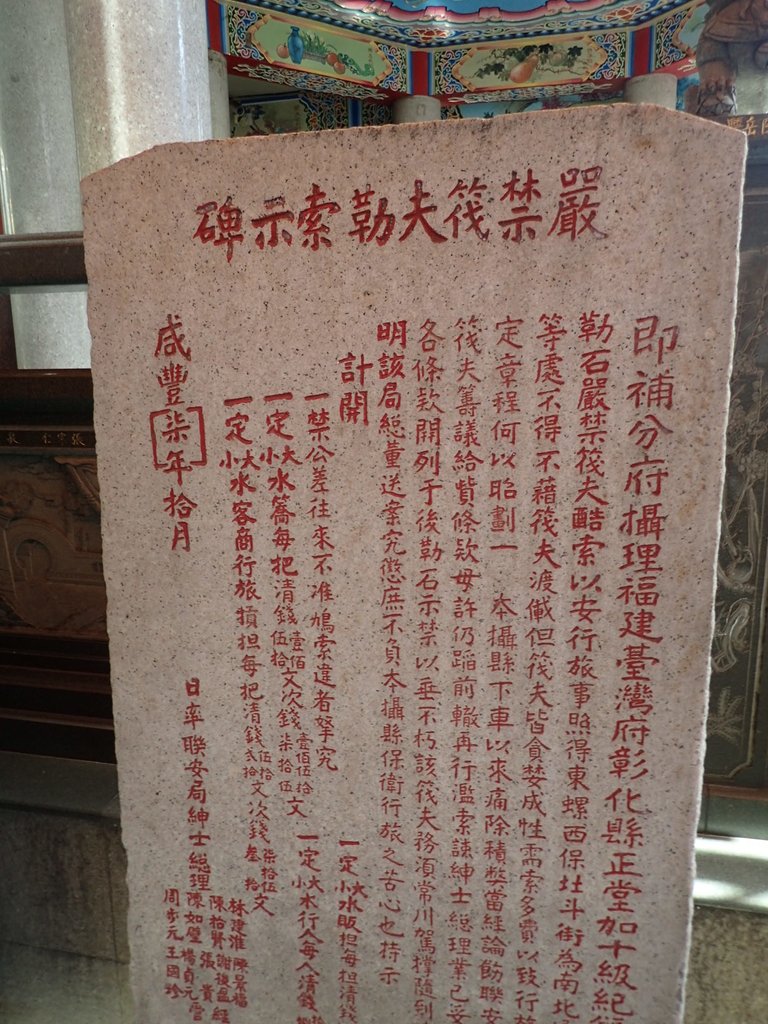 嚴禁筏夫勒索示碑
即補分府攝理福建臺灣府彰化縣正堂加十級紀
勒石嚴禁筏夫酷索以安行旅事照得東螺西保北斗街為南北
等處不得不藉筏夫渡儎但筏夫皆貪婪成性需索多費以致行旅
定章程何以昭劃一 本攝縣下車以來痛除積弊當經諭飭聯安
筏夫籌議給貲條款毋許仍蹈前轍再行濫索諫紳士總理業已妥
各條款開列于後勒石示禁以垂不朽該筏夫務須常川駕撐隨到
明該局總董送案究懲庶不負本攝縣保衛行旅之苦心也特示
計開
一禁公差往來不准鳩索違者拏究 一定大小水販担每担清錢
一定大小水籌每把清錢壹佰伍拾文次錢壹佰伍拾柒拾伍文 一定大小水行人每人清錢
一定大小水客商行旅損担每把清錢伍拾弍拾文次錢柒拾伍叁拾文
咸豐柒年拾月 日率聯安局紳士總理
林建淮陳景福
陳拾賢謝後盈經
陳如璧張貴
楊貞元
周步元王國珍
張宗仁